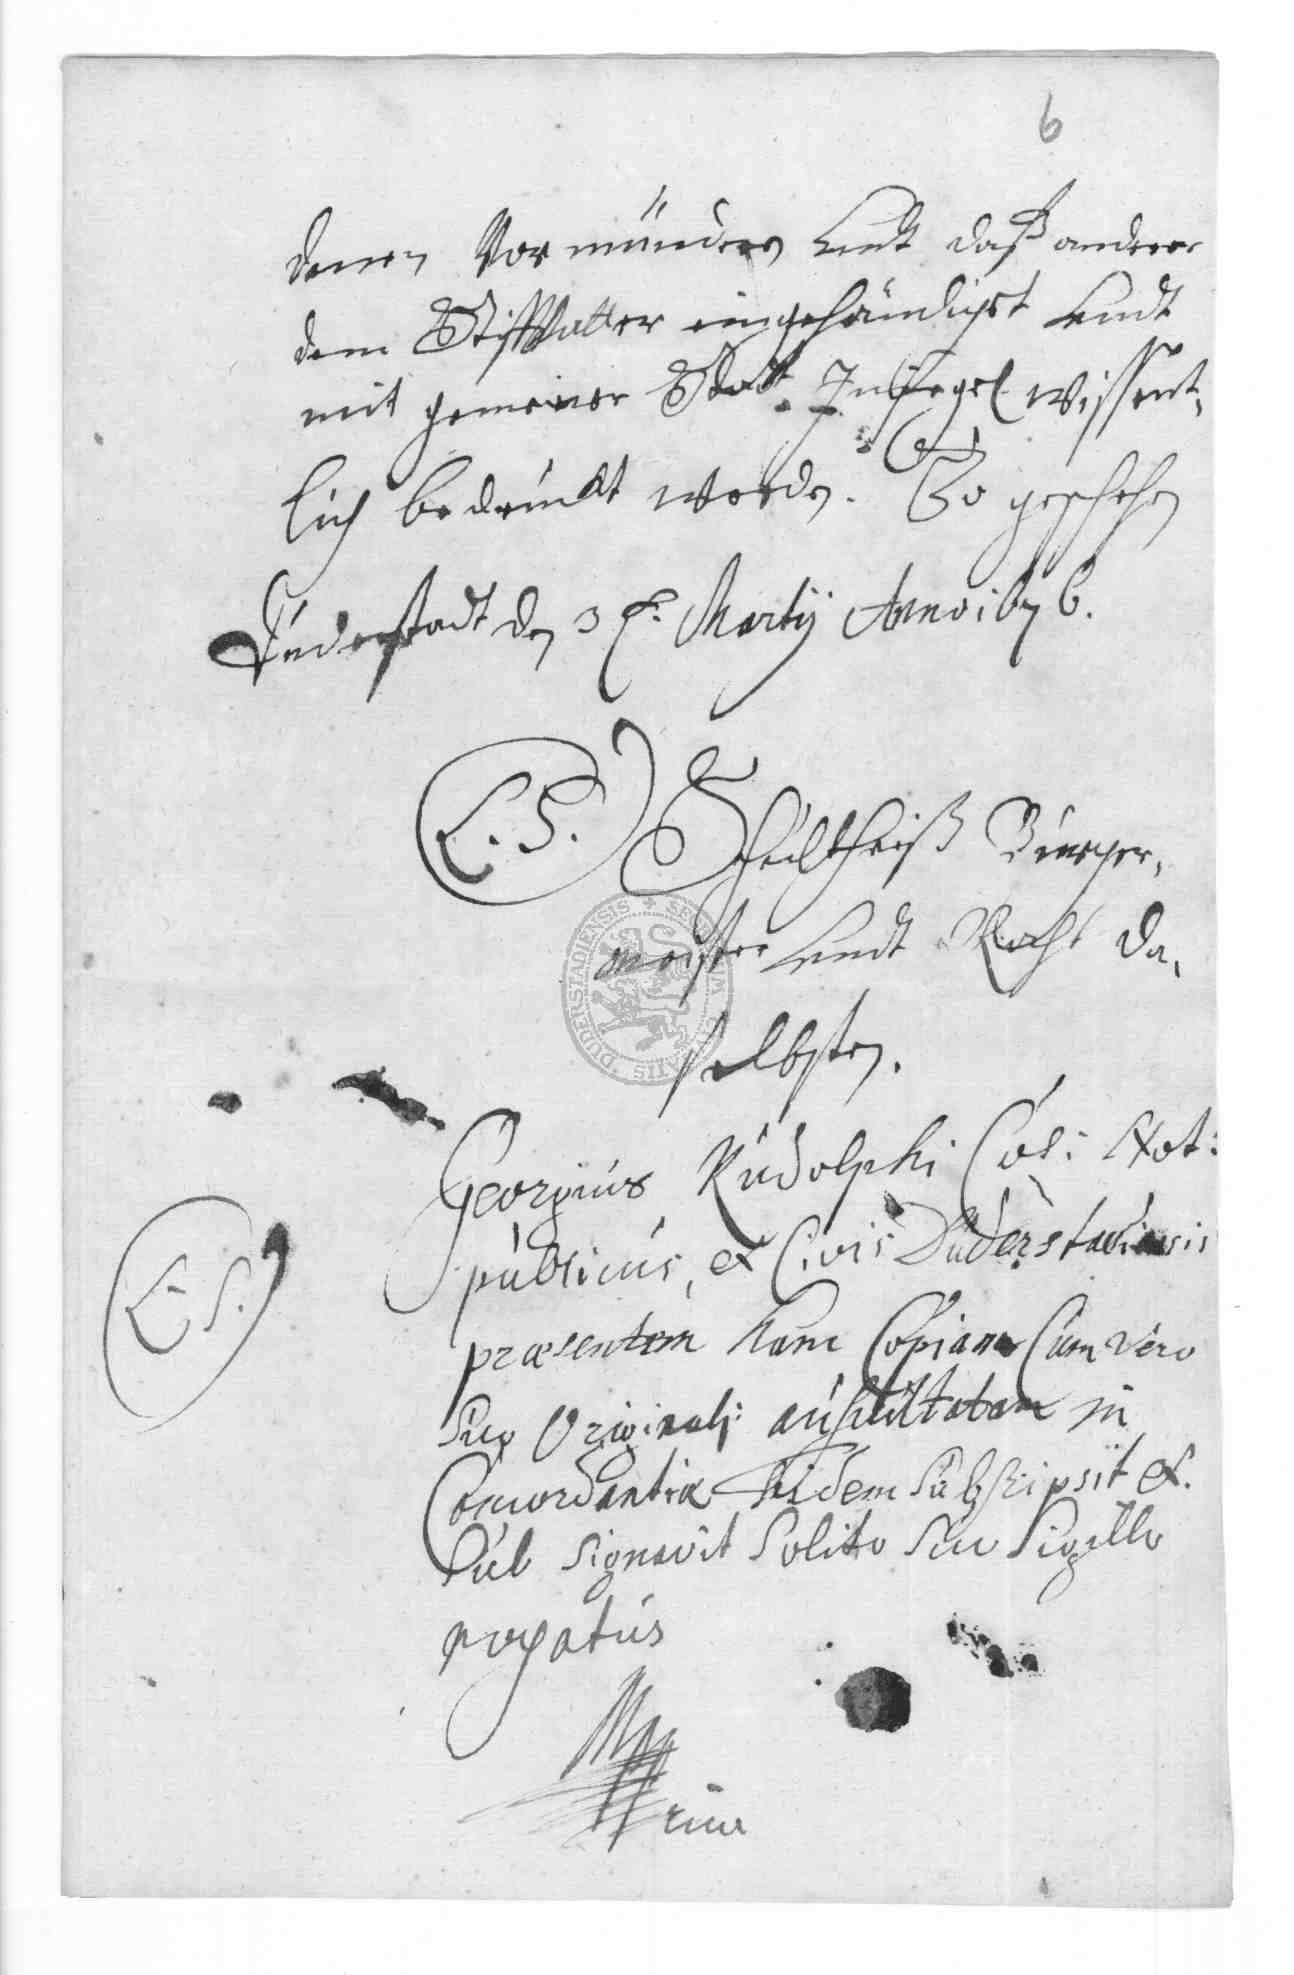 6
denen Vormündern undt daß andere
dem Stiffvatter eingehändiget undt
mit gemeiner Stadt Insiegel wissent-
lich bedrückt worden. So geschehen
Duderstadt den 3t. Martij Anno 1676.
L. S.
Schultheiß Bürger-
meister undt Raht da-
selbsten.
DUDERSTADIENSIS + SENATUM CIVITATIS
Georgius Rudolphi Cæs: Not:
publicus, et Civis Duderstadiensis
L. S.
præsentem hanc Copiam Cum vero
suo Originali auscultatam in
Concordantiæ fidem subscripsit et
sub signavit solito suo sigillo
rogatus